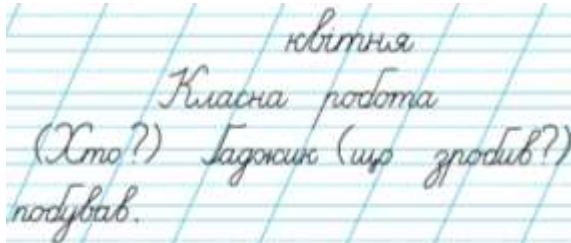 квітня
Класна робота
(Хто?) Гаджик (що зробив?)
побував.